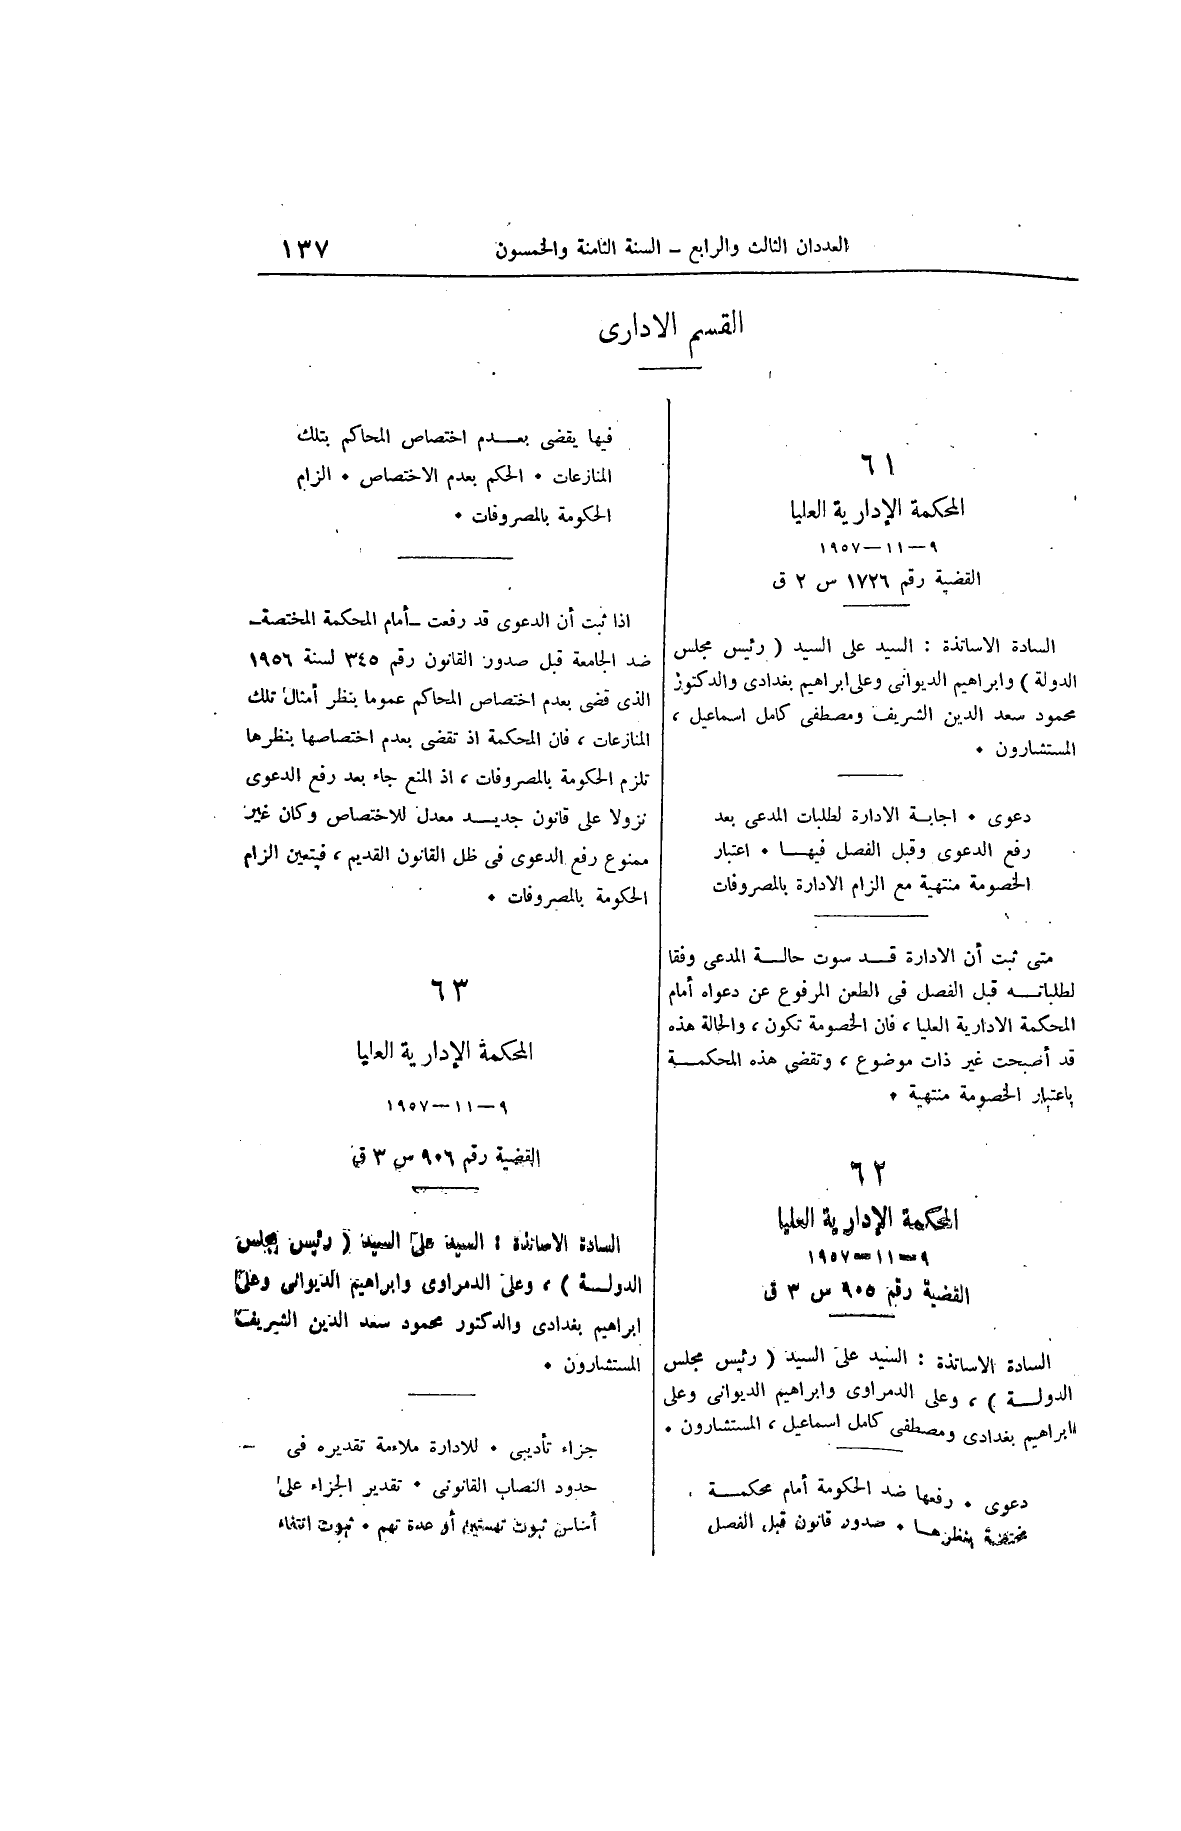 العددان الثالث والرابع – السنة الثامنة والخمسون
١٣٧
القسم الادارى
٦١
المحكمة الإدارية العليا
٩ – ١١ – ١٩٥٧
القضية رقم ١٧٢٦ س ٢ ق
السادة الاساتذة : السيد على السيد ( رئيس مجلس
الدولة ) وابراهيم الديوانى وعلى ابراهيم بغدادى والدكتور
محمود سعد الدين الشريف ومصطفى كامل اسماعيل ،
المستشارون •
دعوى • اجابة الادارة لطلبات المدعى بعد
رفع الدعوى وقبل الفصل فيها • اعتبار
الخصومة منتهية مع الزام الادارة بالمصروفات
متى ثبت أن الادارة قد سوت حالة المدعى وفقا
لطلباته قبل الفصل فى الطعن المرفوع عن دعواه أمام
المحكمة الادارية العليا ، فان الخصومة تكون ، والحالة هذه
قد أصبحت غير ذات موضوع ، وتقضى هذه المحكمة
باعتبار الخصومة منتهية •
٦٢
المحكمة الإدارية العليا
٩ – ١١ – ١٩٥٧
القضية رقم ٩٠٥ س ٣ ق
السادة الاساتذة : السيد على السيد ( رئيس مجلس
الدولة ) ، وعلى الدمراوى وابراهيم الديوانى وعلى
ابراهيم بغدادى ومصطفى كامل اسماعيل ، المستشارون •
دعوى • رفعها ضد الحكومة أمام محكمة
مختصة بنظرها • صدور قانون قبل الفصل
فيها يقضى بعدم اختصاص المحاكم بتلك
المنازعات • الحكم بعدم الاختصاص • الزام
الحكومة بالمصروفات •
اذا ثبت أن الدعوى قد رفعت –أمام المحكمة المختصة–
ضد الجامعة قبل صدور القانون رقم ٣٤٥ لسنة ١٩٥٦
الذى قضى بعدم اختصاص المحاكم عموما بنظر أمثال تلك
المنازعات ، فان المحكمة اذ تقضى بعدم اختصاصها بنظرها
تلزم الحكومة بالمصروفات ، اذ المنع جاء بعد رفع الدعوى
نزولا على قانون جديد معدل للاختصاص وكان غير
ممنوع رفع الدعوى فى ظل القانون القديم ، فيتعين الزام
الحكومة بالمصروفات •
٦٣
المحكمة الإدارية العليا
٩ – ١١ – ١٩٥٧
القضية رقم ٩٠٦ س ٣ ق
السادة الاساتذة : السيد على السيد ( رئيس مجلس
الدولة ) ، وعلى الدمراوى وابراهيم الديوانى وعلى
ابراهيم بغدادى والدكتور محمود سعد الدين الشريف
المستشارون •
جزاء تأديبى • للادارة ملاءمة تقديره فى
حدود النصاب القانونى • تقدير الجزاء على
أساس ثبوت تهمتين أو عدة تهم • ثبوت انتفاء